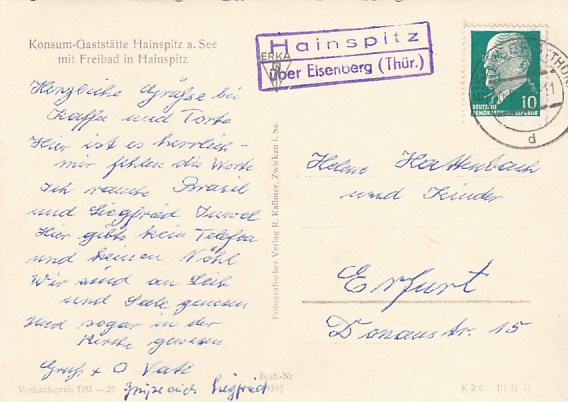 Konsum-Gaststätte Hainspitz a. See
mit Freibad in Hainspitz
Hainspitz
über Eisenberg (Thür.)
ERKA
10
DEUTSCHE
DEMOKRATISCHE REPUBLIK
d
Herzliche Grüsse bei
Kaffee und Torte
Hier ist es herrlich-
mir fehlen die Worte
Ich rauche
und Siegfried Juwel
Hier gibts kein Telefon
und keinen
Wir sind an Leib
und Seele genesen
und sogar in der
Kirche gewesen
Gruß + O Vati
Grüße auch Siegfried
Helene Hattenbach
und Kinder
Erfurt
Donaustr. 15
Fotografischer Verlag R. Kallmer, Zwickau i. Sa.
Verkaufspreis DM —25
Best.-Nr